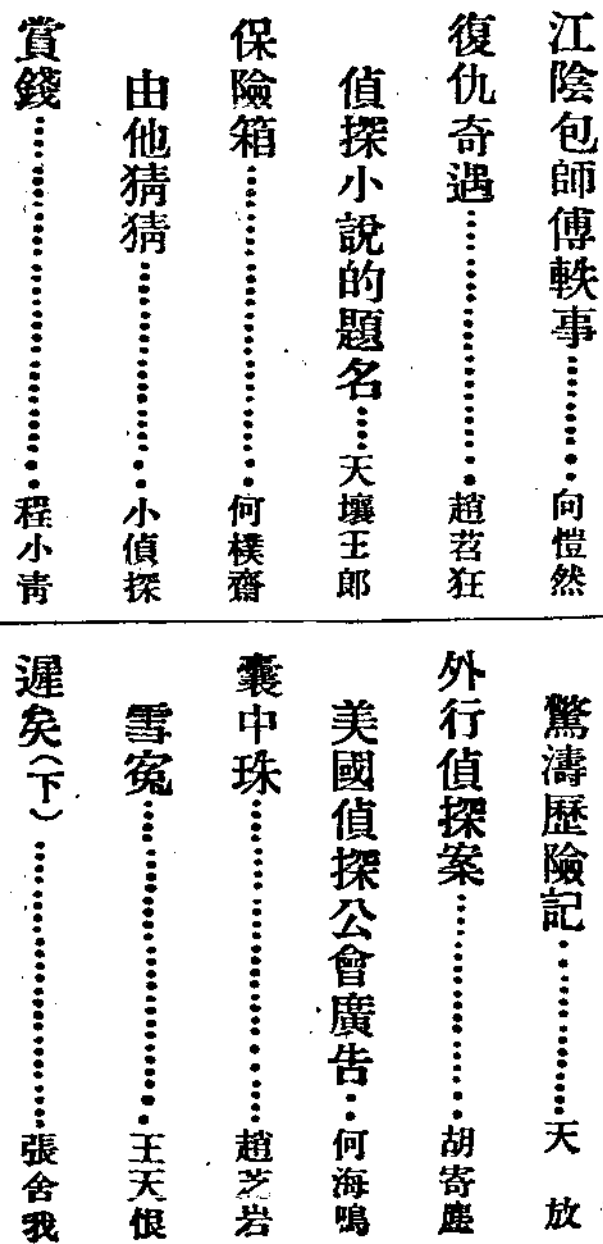 江陰包師傅軼事……向愷然
復仇奇遇……趙苕狂
偵探小說的題名……天壤王郎
保險箱……何樸齋
由他猜猜……小偵探
賞錢……程小青
驚濤歷險記……天放
外行偵探案……胡寄塵
美國偵探公會廣告……何海鳴
囊中珠……趙芝岩
雪冤……王天恨
遲矣（下）……張舍我